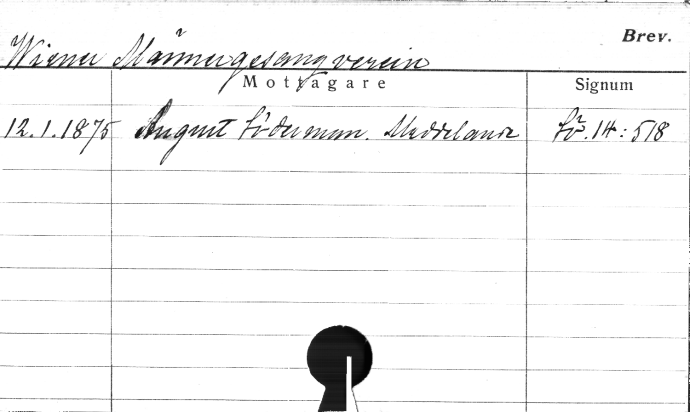 Brev.
Wiener Männergesangverein
Mottagare Signum
12.1.1875 August Söderman. Meddelande Sö. 14:518